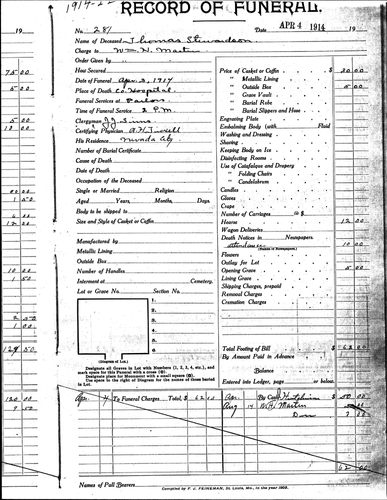 1914-22
RECORD OF FUNERAL.
19
No. 281 Date APR 4 1914 19
Name of Deceased Thomas Stewardson
Charge to Wm H. Martin
Order Given by
How Secured
Date of Funeral Apr. 3, 1914
Place of Death Co Hospital
Funeral Services at Parlors
Time of Funeral Service 2 P.M
Clergyman
Certifying Physician
His Residence Nunda
Number of Burial Certificate
Cause of Death
Date of Death
Occupation of the Deceased
Single or Married Religion
Aged Years, Months, Days.
Body to be shipped to
Size and Style of Casket or Coffin
Manufactured by
Metallic Lining
Outside Box
Number of Handles
Interment at Cemetery,
Lot or Grave No. Section No.
1.
2.
3.
4.
5.
6.
(Diagram of Lot.)
Designate all Graves in Lot with Numbers (1, 2, 3, 4, etc.), and
mark space for this Funeral with a cross (⊗).
Designate place for Monument with a small square (□).
Use space to right of Diagram for the names of those buried
in Lot.
Price of Casket or Coffin $ 30 00
" Metallic Lining
" Outside Box 5 00
" Grave Vault
" Burial Robe
" Burial Slippers and Hose
Engraving Plate
Embalming Body (with Fluid
Washing and Dressing
Shaving
Keeping Body on Ice
Disinfecting Rooms
Use of Catafalque and Drapery
" Folding Chairs
" Candelabrum
Candles
Gloves
Crape
Number of Carriages @ $
Hearse 12 00
Wagon Deliveries
Death Notices in Newspapers.
attendance 10 00
(Names of Newspapers).
Flowers
Outlay for Lot
Opening Grave 5 00
Lining Grave
Shipping Charges, prepaid
Removal Charges
Cremation Charges
Total Footing of Bill $ 62 00
By Amount Paid in Advance
Balance
Entered into Ledger, page or below.
Apr. 4 To Funeral Charges Total, $ 62 00 Apr By Cash 50 00
Aug 14 W.H. Martin
62 00
Names of Pall Bearers
Compiled by F. J. FEINEMAN, St. Louis, Mo., in the year 1908.